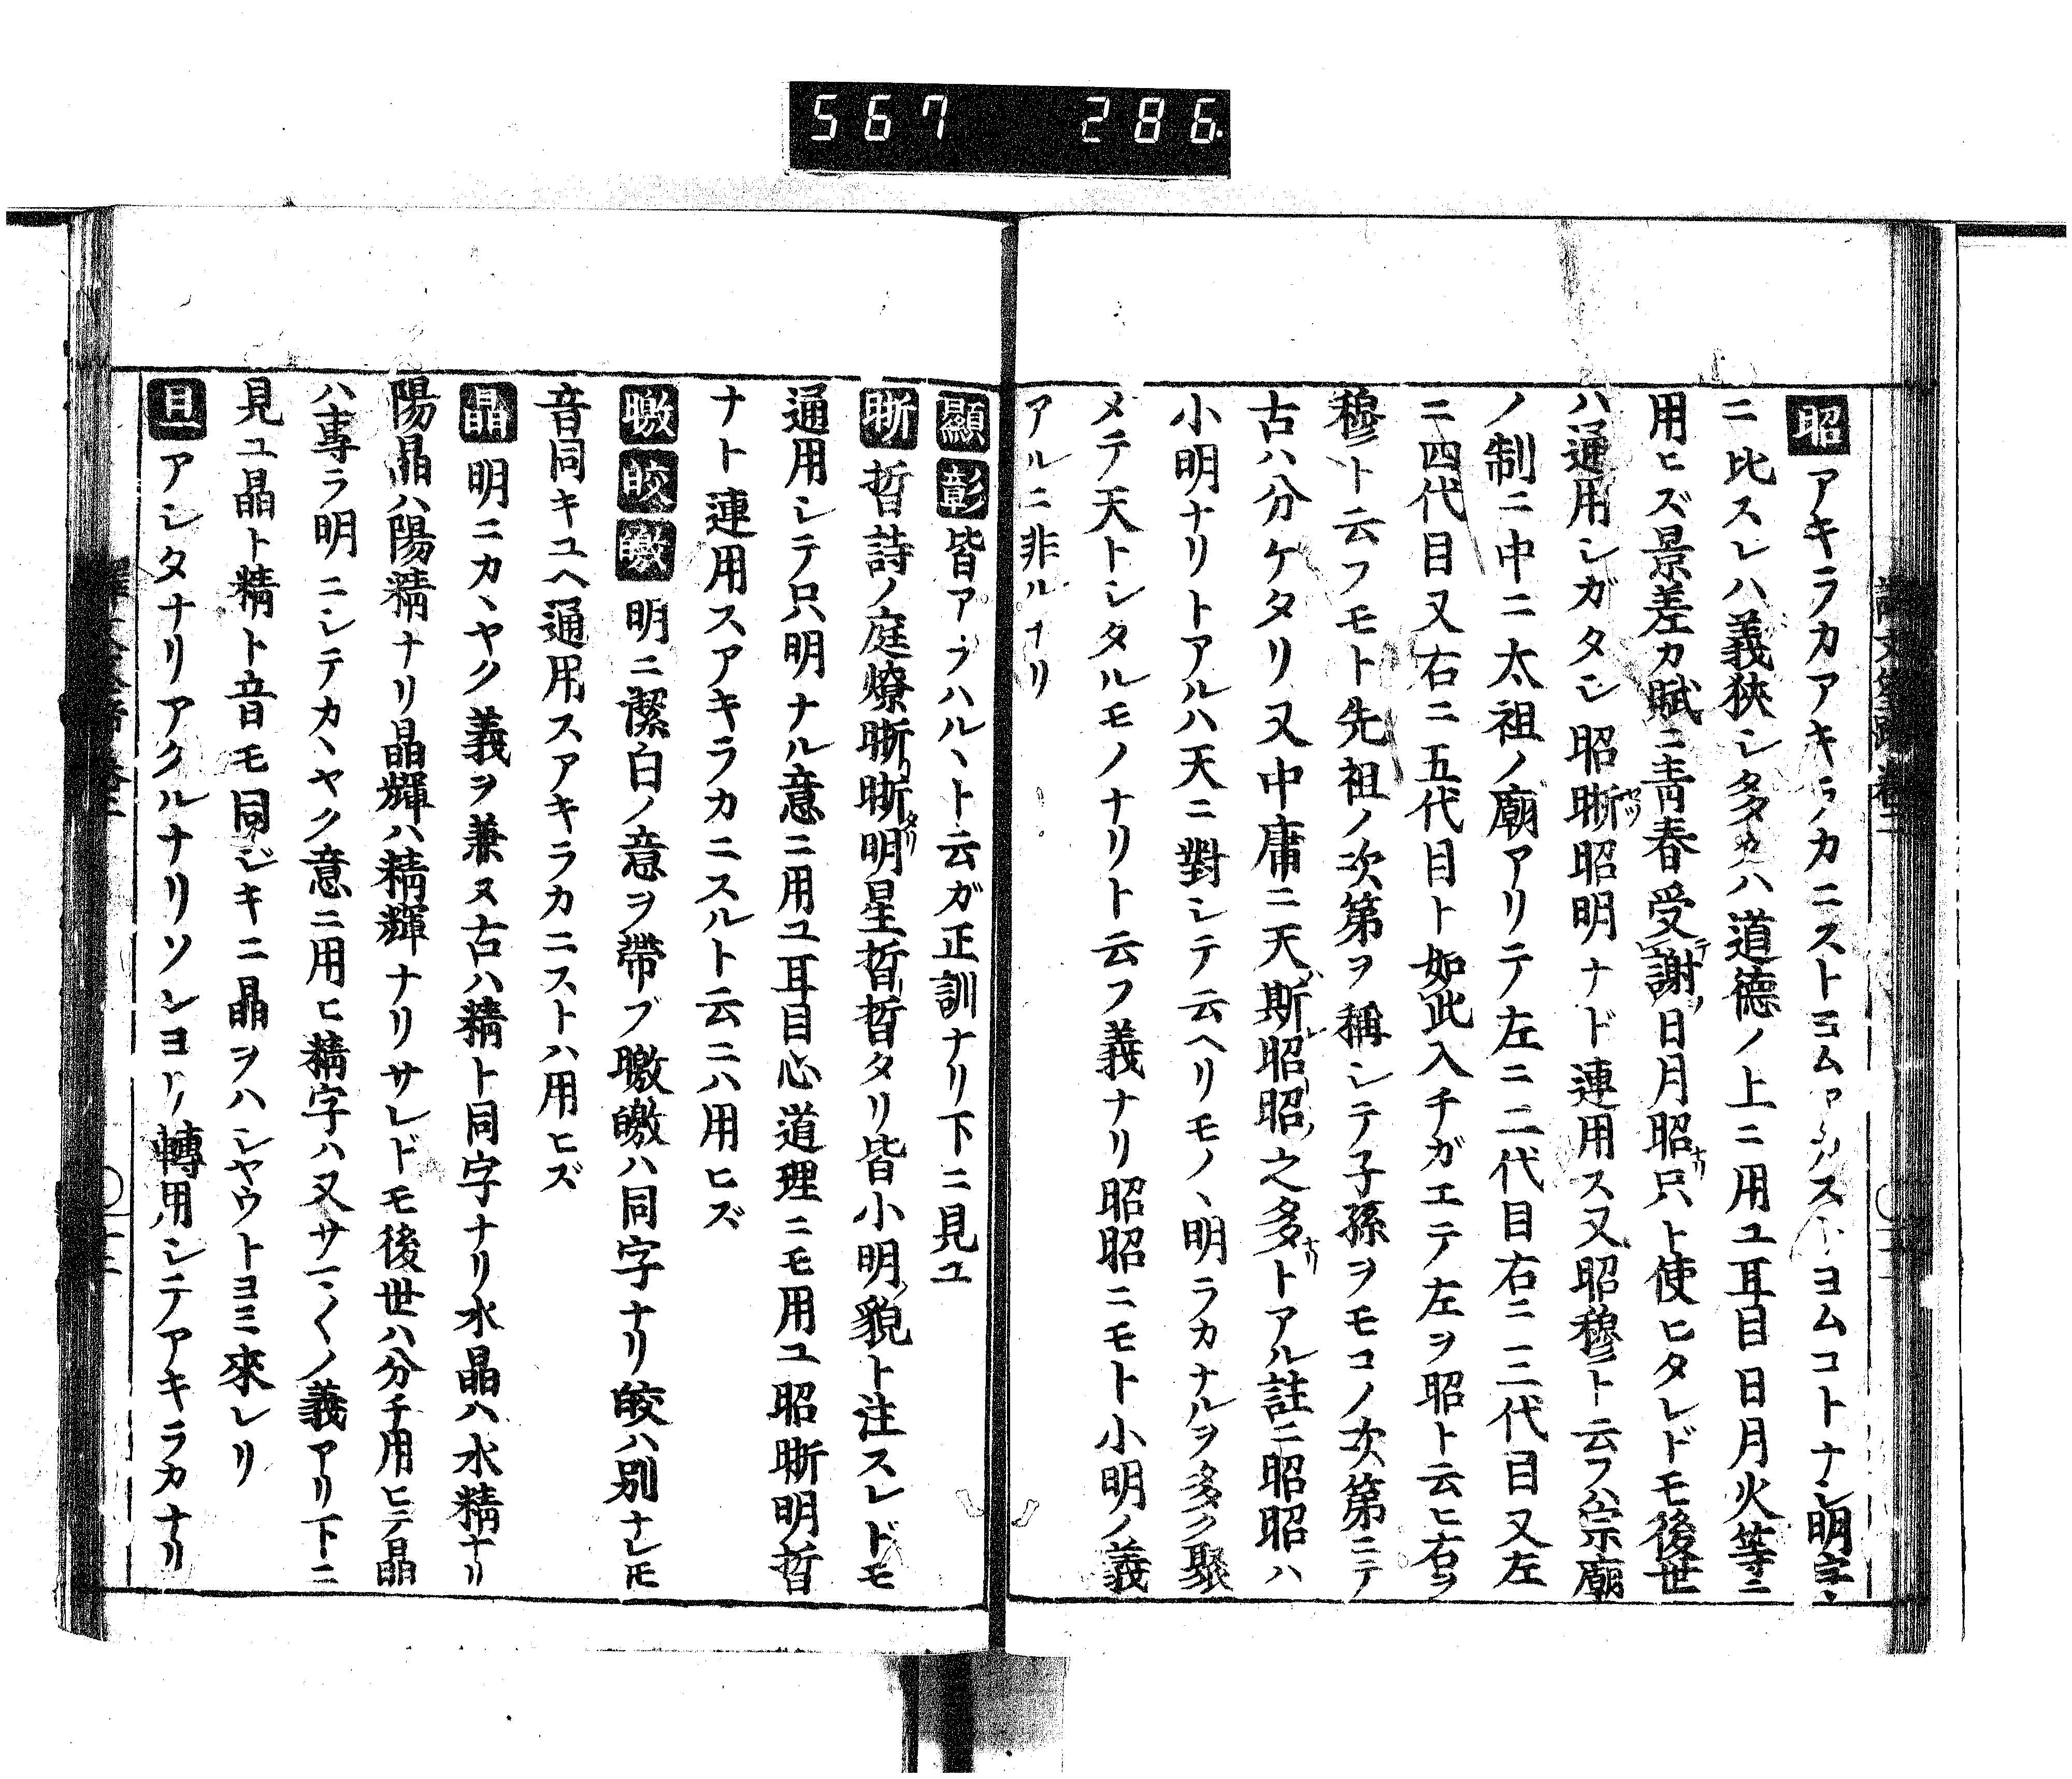 567 286.
昭 アキラカアキラカニストヨムアラハストヨムコトナシ明字
ニ比スレハ義狹シ多クハ道德ノ上ニ用ユ耳目日月火等ニ
用ヒズ景差カ賦ニ青春受謝日月昭只ト使ヒタレドモ後世
ハ通用シガタシ昭晣昭明ナド連用ス又昭穆ト云フハ宗廟
ノ制ニ中ニ太祖ノ廟アリテ左ニ二代目右ニ三代目又左
ニ四代目又右ニ五代目ト如此入チガエテ左ヲ昭ト云ヒ右ヲ
穆ト云フモト先祖ノ次第ヲ稱シテ子孫ヲモコノ次第ニテ
古ハ分ケタリ又中庸ニ天斯昭昭之多トアル註ニ昭昭ハ
小明ナリトアルハ天ニ對シテ云ヘリモノヽ明ラカナルヲ多ク聚
メテ天トシタルモノナリト云フ義ナリ昭昭ニモト小明ノ義
アルニ非ルナリ
顯 彰 皆アラハルヽト云ガ正訓ナリ下ニ見ユ
晣 晢詩ノ庭燎晣晣明星晢晢タリ皆小明貌ト注スレドモ
通用シテ只明ナル意ニ用ユ耳目心道理ニモ用ユ昭晣明晢
ナト連用スアキラカニスルト云ニハ用ヒズ
皦 皎 曒 明ニ潔白ノ意ヲ帶ブ曒皦ハ同字ナリ皎ハ別ナレ𪜈
音同キユヘ通用スアキラカニストハ用ヒズ
晶 明ニカヽヤク義ヲ兼ヌ古ハ精ト同字ナリ水晶ハ水精ナリ
陽晶ハ陽精ナリ晶輝ハ精輝ナリサレドモ後世ハ分チ用ヒテ晶
ハ專ラ明ニシテカヽヤク意ニ用ヒ精字ハ又サマ〲ノ義アリ下ニ
見ユ晶ト精ト音モ同ジキニ晶ヲハシヤウトヨミ來レリ
旦 アシタナリアクルナリソレヨリ轉用シテアキラカナリ